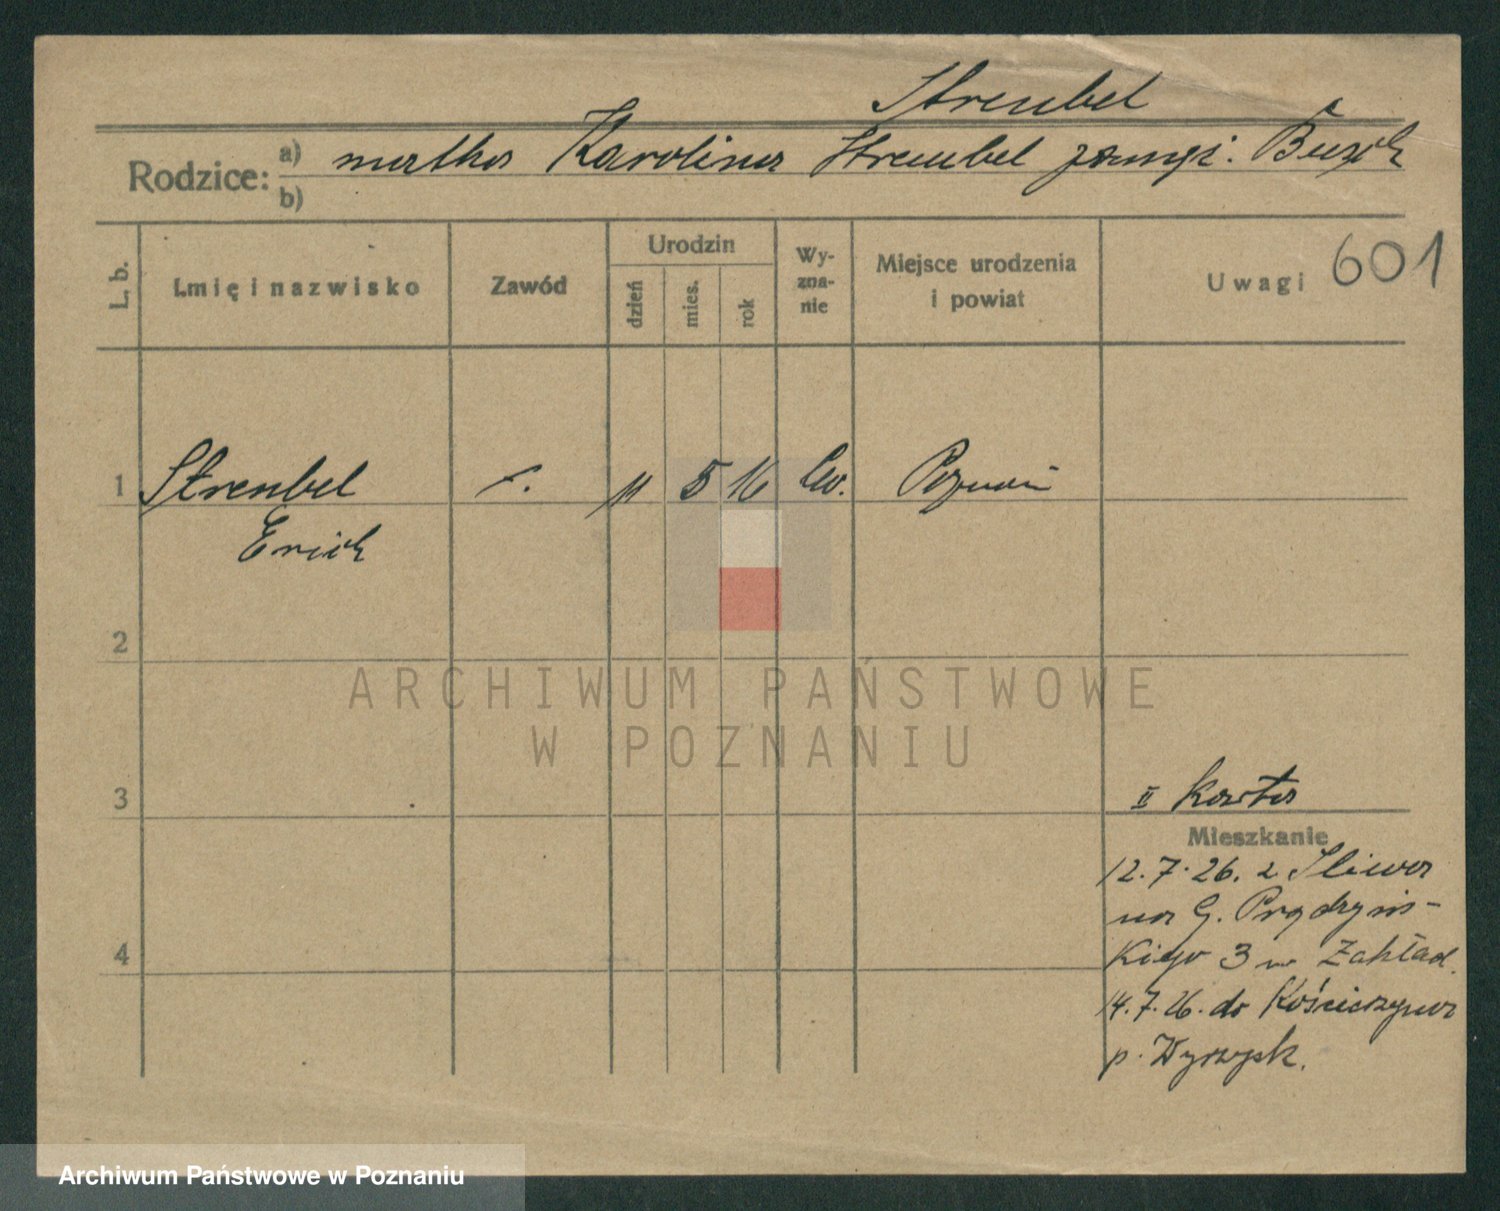 Strenbel
Rodzice: a) matka Karolina Strenbel zamęż. Busch
b)
L. b. Imię i nazwisko Zawód Urodzin dzień mies. rok Wyznanie Miejsce urodzenia i powiat Uwagi 601
1 Strenbel 11 5 16 Ew. Poznań
Erich
2
ARCHIWUM PAŃSTWOWE
W POZNANIU
3
II karta
Mieszkanie
12.7.26. z Śliwna
na G. Prądzyńs-
kiego 3 w Zakład.
4
14.7.26. do Kościerzyna
p. Wyrzysk.
Archiwum Państwowe w Poznaniu